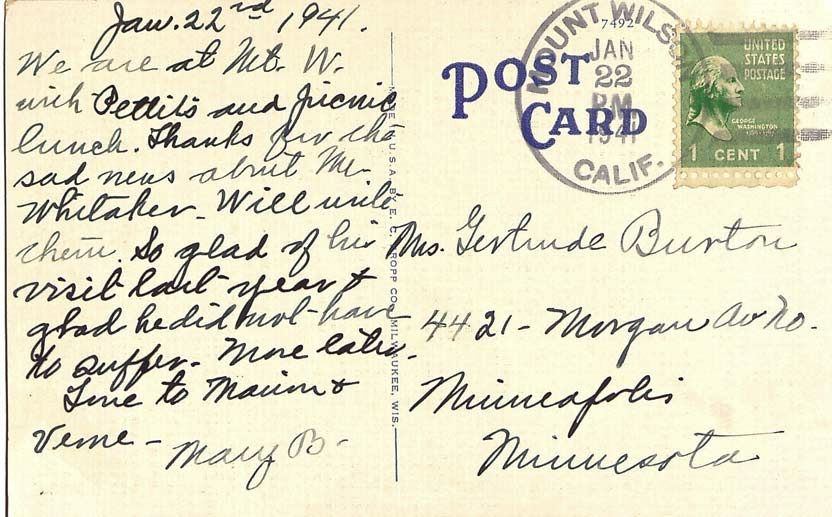 Jan. 22nd, 1941.
We are at Mt. W.
with Pettits and picnic
lunch. Thanks for the
sad news about Mr.
Whitaker. Will write
them. So glad of his
visit last year &
glad he did not have
to suffer. More later.
Love to Marion &
Verne –
Mary B –
MADE IN U.S.A. BY E. C. KROPP CO., MILWAUKEE, WIS.
7492
POST
CARD
MOUNT WILSON
JAN
22
PM
1941
CALIF.
UNITED
STATES
POSTAGE
GEORGE
WASHINGTON
1 CENT 1
Mrs. Gertrude Burton
4421 – Morgan Av No.
Minneapolis
Minnesota